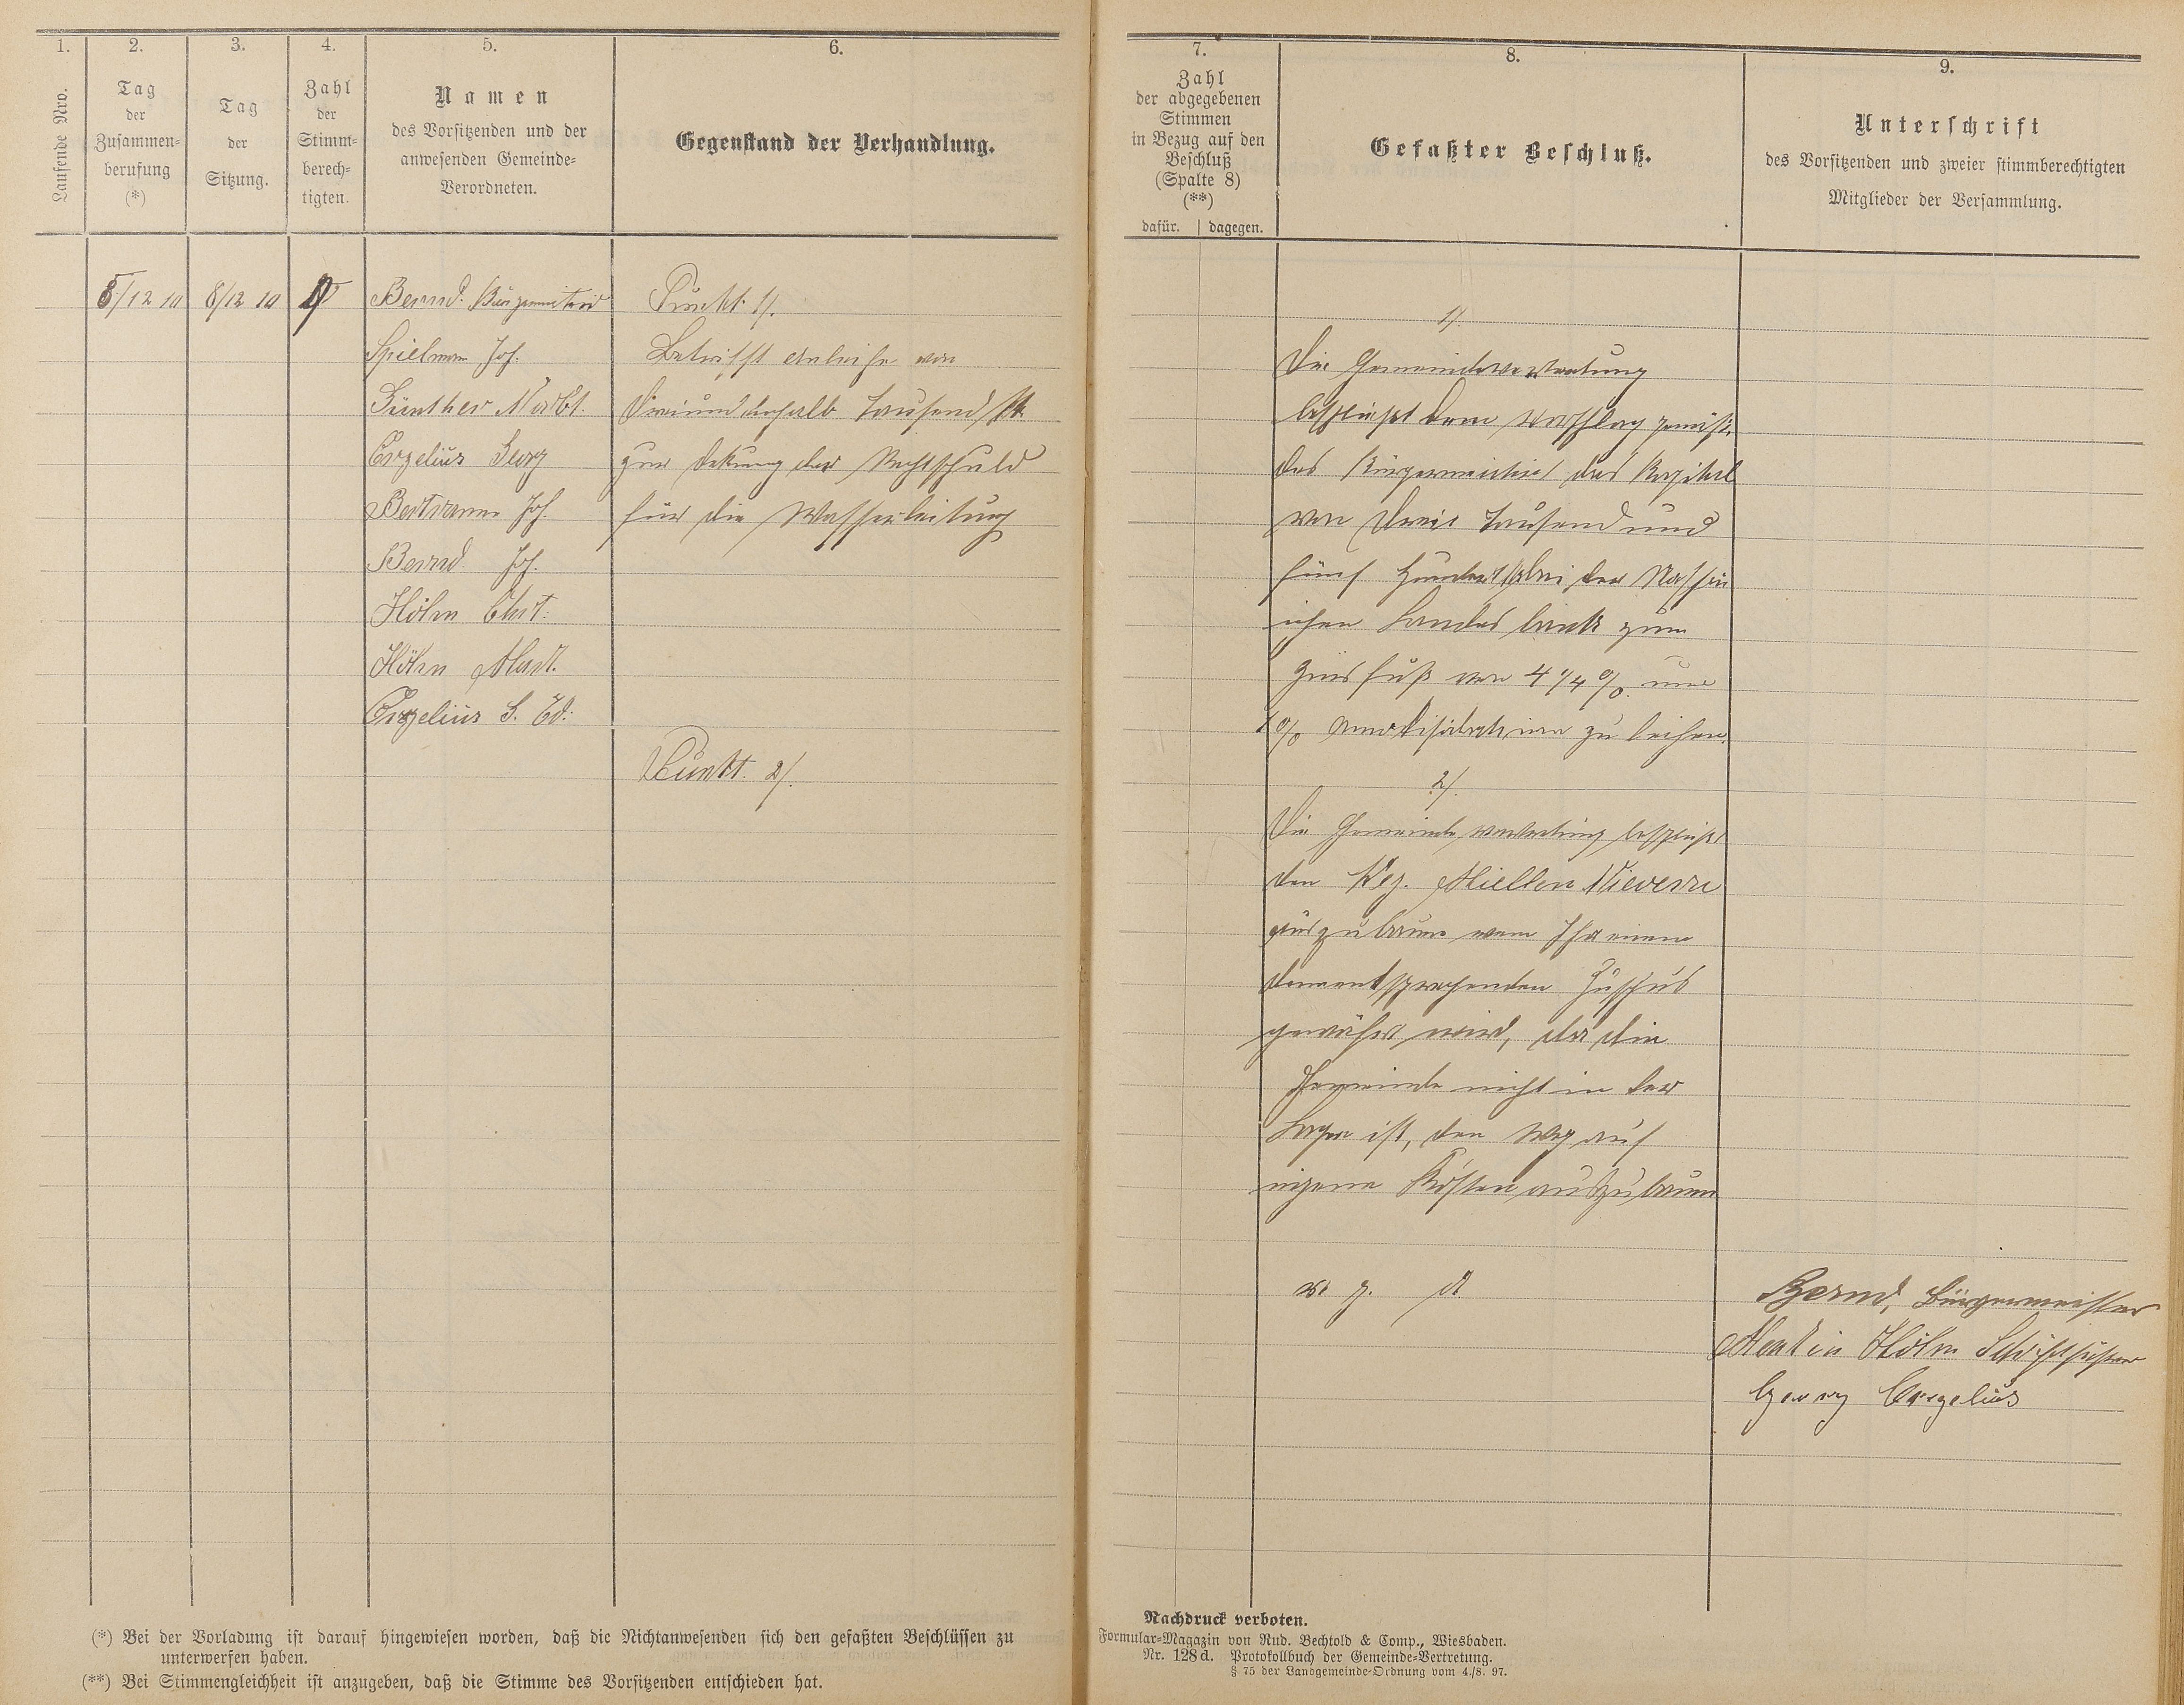 1.
Laufende Nro.
2.
Tag
der
Zusammen-
berufung
(*)
3.
Tag
der
Sitzung.
4.
Zahl
der
Stimm-
berech-
tigten.
5.
Namen
des Vorsitzenden und der
anwesenden Gemeinde-
Verordneten.
6.
Gegenstand der Verhandlung.
5/12 10
8/12 10
Bernd. Bürgermeister
Spielmann Joh.
Günther
Georg
Bertram Joh.
Bernd Joh.
Höhn Chrt.
Höhn Mart.
Punkt 1/.
Betrifft Anleihe von
Dreiundeinhalb Tausend M.
zur Dekung der Restschuld
für die Wasserleitung
Punkt. 2/.
(*) Bei der Vorladung ist darauf hingewiesen worden, daß die Nichtanwesenden sich den gefaßten Beschlüssen zu
unterwerfen haben.
(**) Bei Stimmengleichheit ist anzugeben, daß die Stimme des Vorsitzenden entschieden hat.
7.
Zahl
der abgegebenen
Stimmen
in Bezug auf den
Beschluß
(Spalte 8)
(**)
dafür. | dagegen.
8.
Gefaßter Beschluß.
9.
Unterschrift
des Vorsitzenden und zweier stimmberechtigten
Mitglieder der Versammlung.
1/.
Die Gemeindevertretung
beschließt dem Vorschlag gemäß
des Bürgermeister das Kapital
von Drei Tausend und
fünf Hundert M bei der Nassau
ischen Landes bank zum
Zinsfuß von 4 1/4 %. und
1 % Amortisation zu leihen.
2/.
Die Gemeindevertretung beschließt
den Weg. Miellen Nievern
auszubauen wenn Ihr einen
dementsprechenden Zuschus
gewährt wird, da die
Gemeinde nicht in der
Lage ist, den Weg auf
eigene Kosten auszubauen
v. g. u.
Bernd, Bürgermeister
Martin Höhn Schriftführer
Georg
Nachdruck verboten.
Formular-Magazin von Rud. Bechtold & Comp., Wiesbaden.
Nr. 128 d. Protokollbuch der Gemeinde-Vertretung.
§ 75 der Landgemeinde-Ordnung vom 4./8. 97.